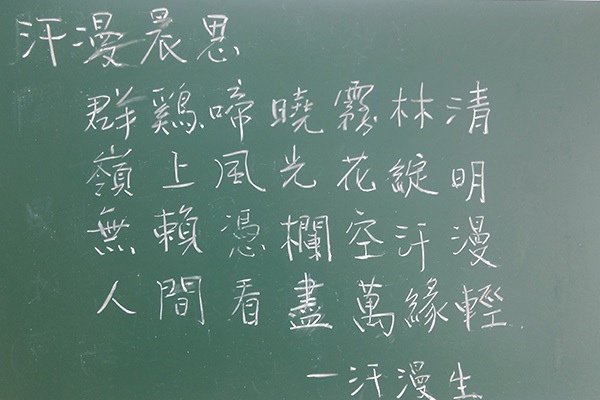 汗漫晨思
群鷄啼曉霧林清
嶺上風光花綻明
無賴憑欄空汗漫
人間看盡萬緣輕
一汗漫生